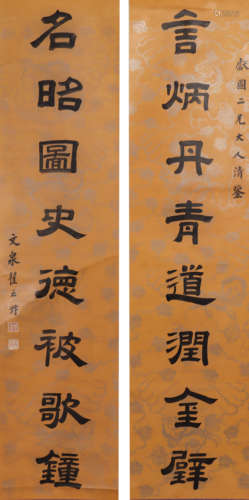 二兄大人清鑒
言炳丹青道潤金璧
名昭圖史徳被歌鐘
文泉翟云升